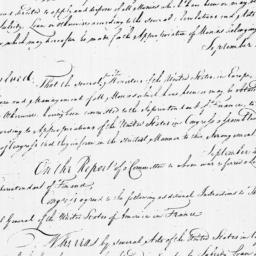 and dispose of all Monies which
Subsidy, Loan or otherwise according to the several Resolutions and Acts
which may hereafter be made for the Appropriation of Monies belonging
September
Resolved. That the several Ministers of the United States, in Europe,
and Management of all Monies which have been or may be obtained
or Otherwise, having been committed to the Superintendent of Finance, to
according to Appropriations of the United States in Congress Assembled
of Congress that they conform in the strictest Manner to this Arrangement
September
On the Report of a Committee to whom was referred a
Superintendent of Finance.
Congress agreed to the following additional Instructions to
General of the United States of America in France.
Whereas by several Acts of the United States in
Subsidy, Loan